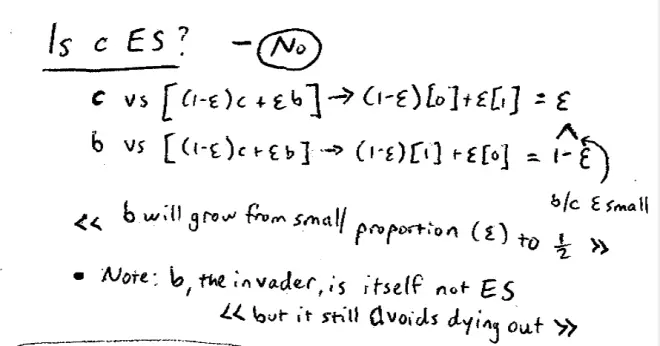 Is c ES? - No
c vs [(1-ε)c + εb] → (1-ε)[0] + ε[1] = ε
^
b vs [(1-ε)c + εb] → (1-ε)[1] + ε[0] = 1-ε
b/c ε small
<< b will grow from small proportion (ε) to 1/2 >>
• Note: b, the invader, is itself not ES
<< but it still avoids dying out >>